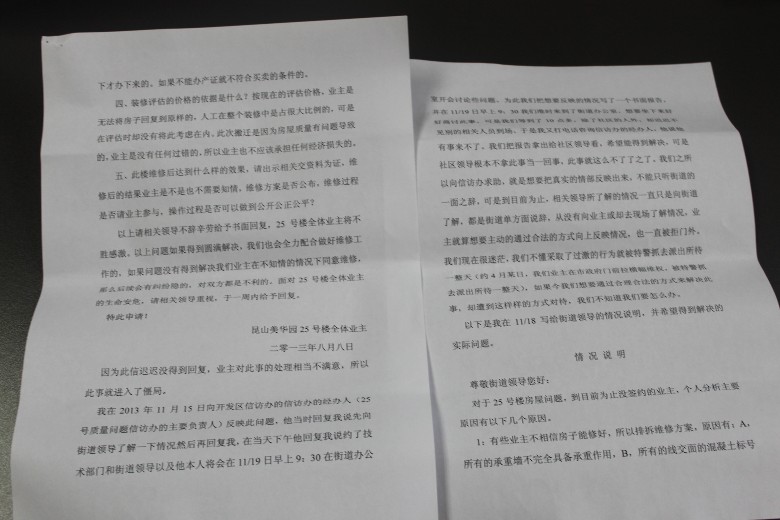 下才办下来的。如果不能办产证就不符合买卖的条件的。
四、装修评估的价格的依据是什么？按现在的评估价格，业主是
无法将房子回复到原样的，人工在整个装修中是占很大比例的，可是
在评估时却没有将此考虑在内。此次搬迁是因为房屋质量有问题导致
的，业主是没有任何过错的，所以业主也不应该承担任何经济损失的。
五、此楼维修后达到什么样的效果，请出示相关交资料为证，维
修后的结果业主是不是也不需要知情，维修方案是否公布，维修过程
是否请业主参与，操作过程是否可以做到公开公正公平？
以上请相关领导不辞辛劳给予书面回复，25 号楼全体业主将不
胜感激，以上问题如果得到圆满解决，我们也会全力配合做好维修工
作的，如果问题没有得到解决我们业主在不知情的情况下同意维修，
那么后续会有纠纷的，对双方都是不利的。面对 25 号楼全体业主
的生命安危，请相关领导重视，于一周内给予回复。
特此申请！
昆山美华园 25 号楼全体业主
二零一三年八月八日
因为此信迟迟没得到回复，业主对此事的处理相当不满意，所以
此事就进入了僵局。
我在 2013 年 11 月 15 日向开发区信访办的信访办的经办人（25
号质量问题信访办的主要负责人）反映此问题，他当时回复我说先向
街道领导了解一下情况然后再回复我，在当天下午他回复我说约了技
术部门和街道领导以及他本人将会在 11/19 日早上 9：30 在街道办公
室开会讨论些问题，为此我们把想要反映的情况写了一个书面报告，
并在 11/19 日早上 9：30 我们准时来到了街道办公室，想要坐下来好
好商讨此事，可是我们等到了 10 点多，除了社区的人外，始终还不
见别的相关人员到场，于是我又打电话咨询信访办的经办人，他说他
有事来不了，我们把报告拿出给社区领导看，希望能得到解决，可是
社区领导根本不拿此事当一回事，此事就这么不了了之了，我们之所
以向信访办求助，就是想要把真实的情部反映出来，不能只听街道的
一面之辞，可是到目前为止，相关领导所了解的情况一直只是向街道
了解，都是街道单方面说辞，从没有向业主或却去现场了解情况，业
主就算想要主动的通过合法的方式向上反映情况，也一直被拒门外，
我们现在很迷茫，我们不懂采取了过激的行为就被特警抓去派出所待
一整天（约 4 月某日，我们业主在市政府门前拉横幅维权，被特警抓
去派出所待一整天），如果今我们想要通过合理合法的方式来解决此
事，却遭到这样样的方式对待，我们不知道我们要怎么办。
以下是我在 11/18 写给街道领导的情况说明，并希望得到解决的
实际问题。
情 况 说 明
尊敬街道领导您好：
对于 25 号楼房屋问题，到目前为止没签约的业主，个人分析主要
原因有以下几个原因。
1：有些业主不相信房子能修好，所以排拆维修方案，原因有：A，
所有的承重墙不完全具备承重作用，B，所有的线交面的混凝土标号